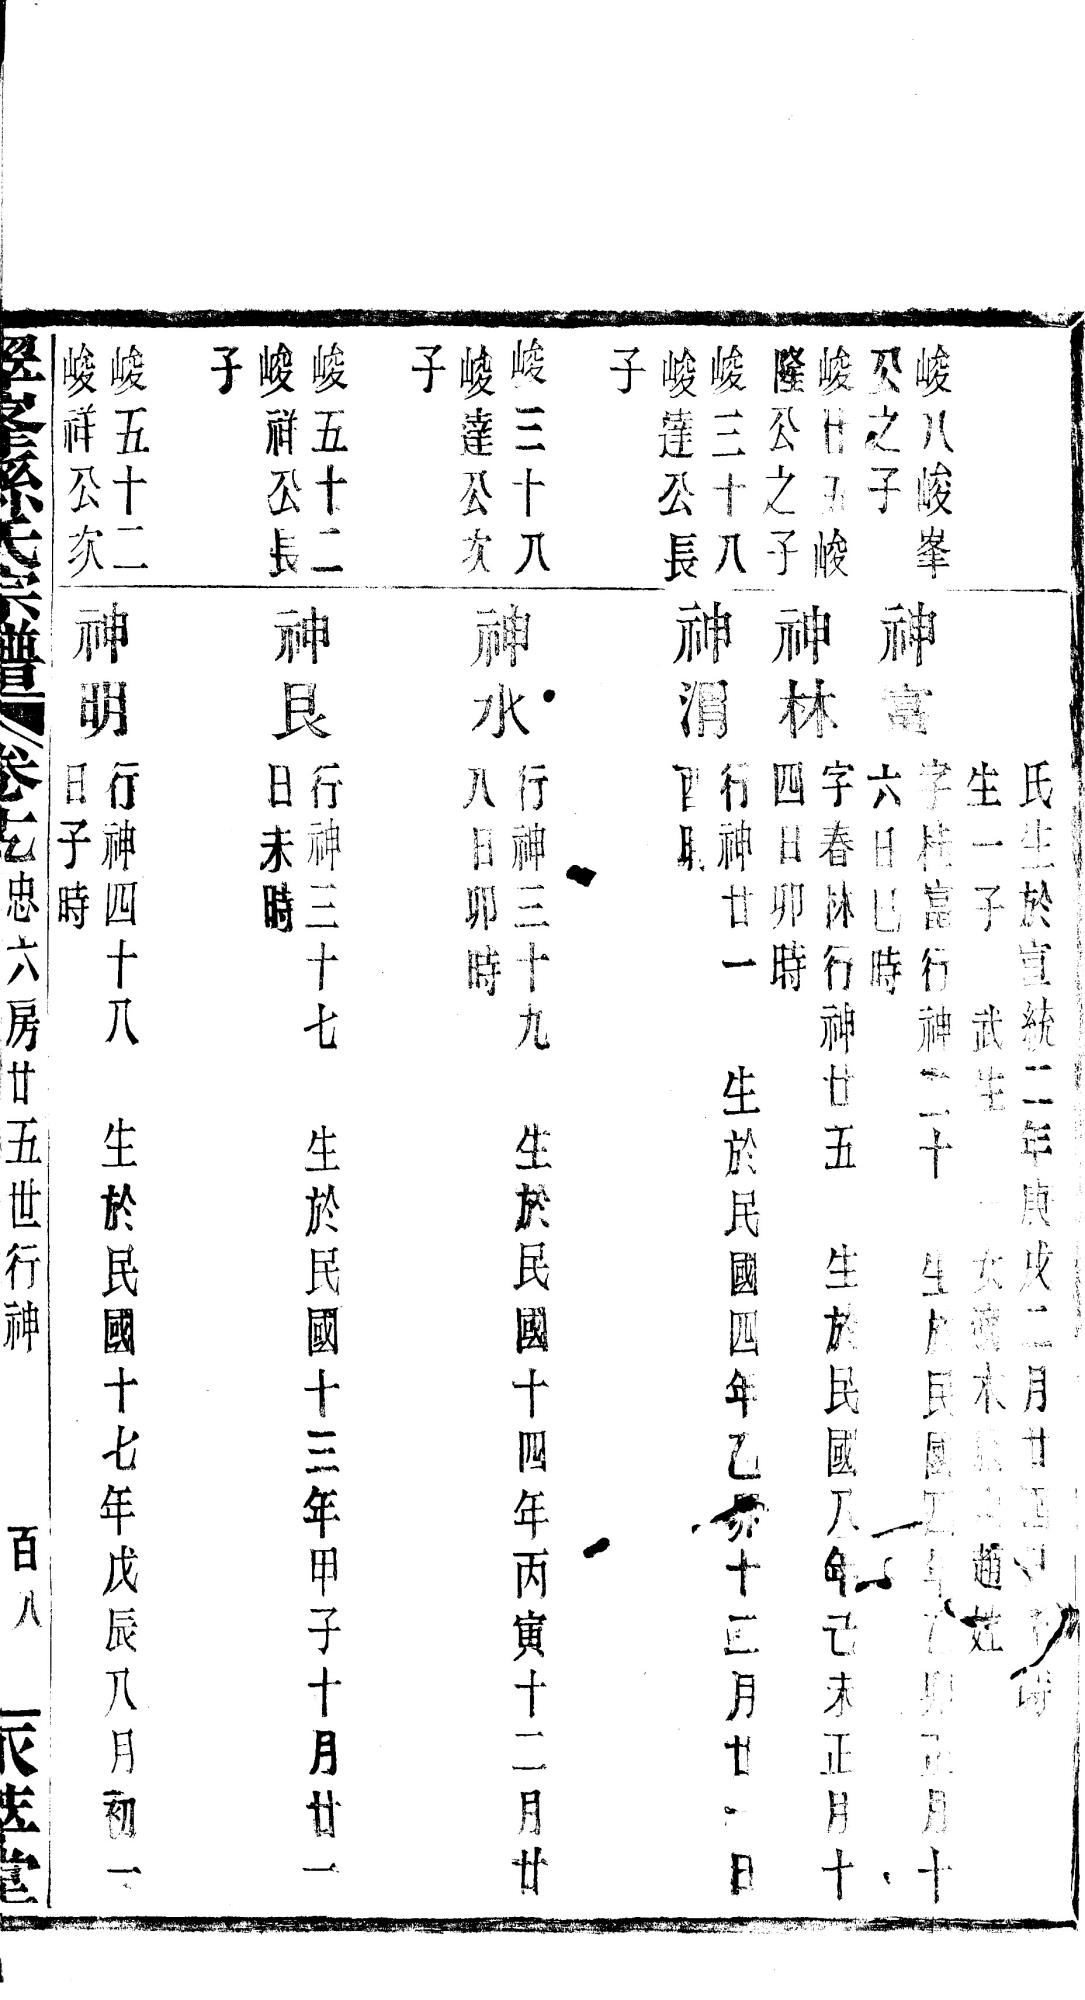 氏生於宣統二年庚戌二月廿四日子時
生一子 武生 一女適木 趙姓
峻八峻峯
公之子
神富
字桂富行神二十 生於民國四年乙卯正月十
六日巳時
峻廿五峻
隆公之子
神林
字春林行神廿五 生於民國八年己未正月十
四日卯時
峻三十八
峻達公長
子
神渭
行神廿一 生於民國四年乙卯十二月廿一日
酉時
峻三十八
峻達公次
子
神水
行神三十九 生於民國十四年丙寅十二月廿
八日卯時
峻五十二
峻祥公長
子
神艮
行神三十七 生於民國十三年甲子十月廿一
日未時
峻五十二
峻祥公次
神明
行神四十八 生於民國十七年戊辰八月初一
日子時
孫氏宗譜 卷七 忠六房廿五世行神 百八 堂